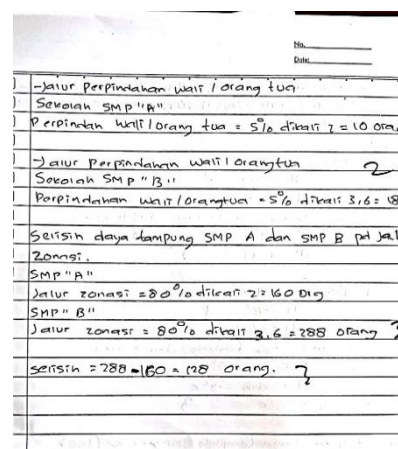 No.
Date
-Jalur perpindahan wali / orang tua
Sekolah SMP "A"
Perpindahan wali / orang tua = 5% dikali 2 = 10 ora
-Jalur perpindahan wali / orangtua
2
Sekolah SMP "B"
Perpindahan wali / orangtua = 5% dikali 3,6 = 18
Selisih daya tampung SMP A dan SMP B pd jal
zonasi.
SMP "A"
Jalur zonasi = 80% dikali 2 = 160 org
SMP "B"
Jalur zonasi = 80% dikali 3,6 = 288 orang
selisih = 288 - 160 = 128 orang.